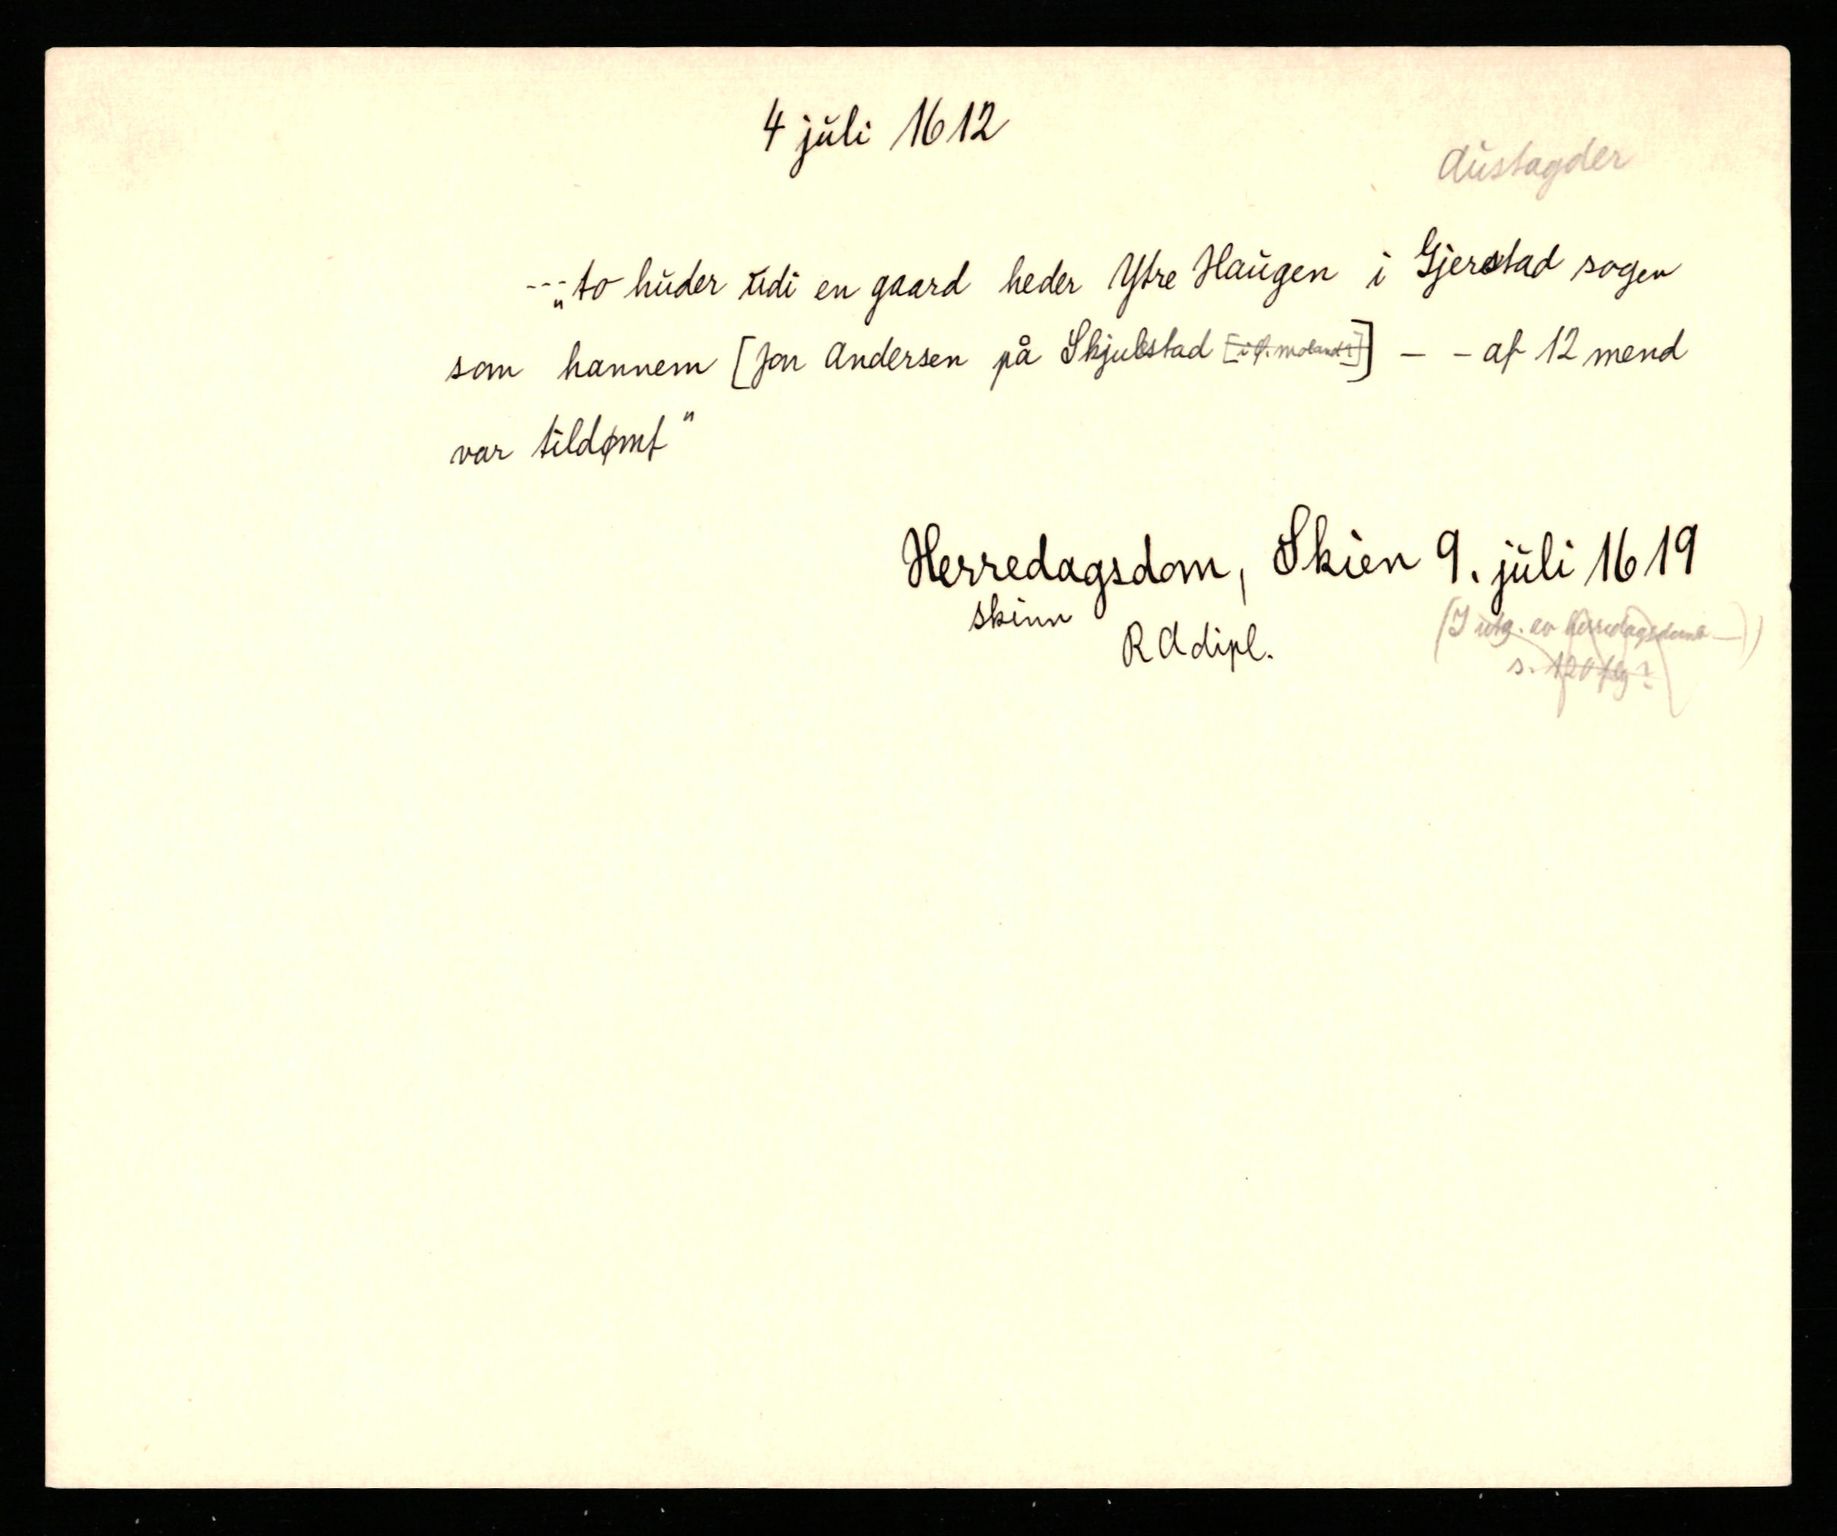 4 juli 1612
Austagder
--- „to huder udi en gaard heder Ytre Haugen i Gjerstad sogen
som hannem [Jon Andersen på Skjulstad [i Ø. Moland?]] – – af 12 mend
var tildømt"
Herredagsdom, Skien 9. juli 1619
skinn
RA dipl.
(I utg. av herredagsdomb —)
s. 120 flg?